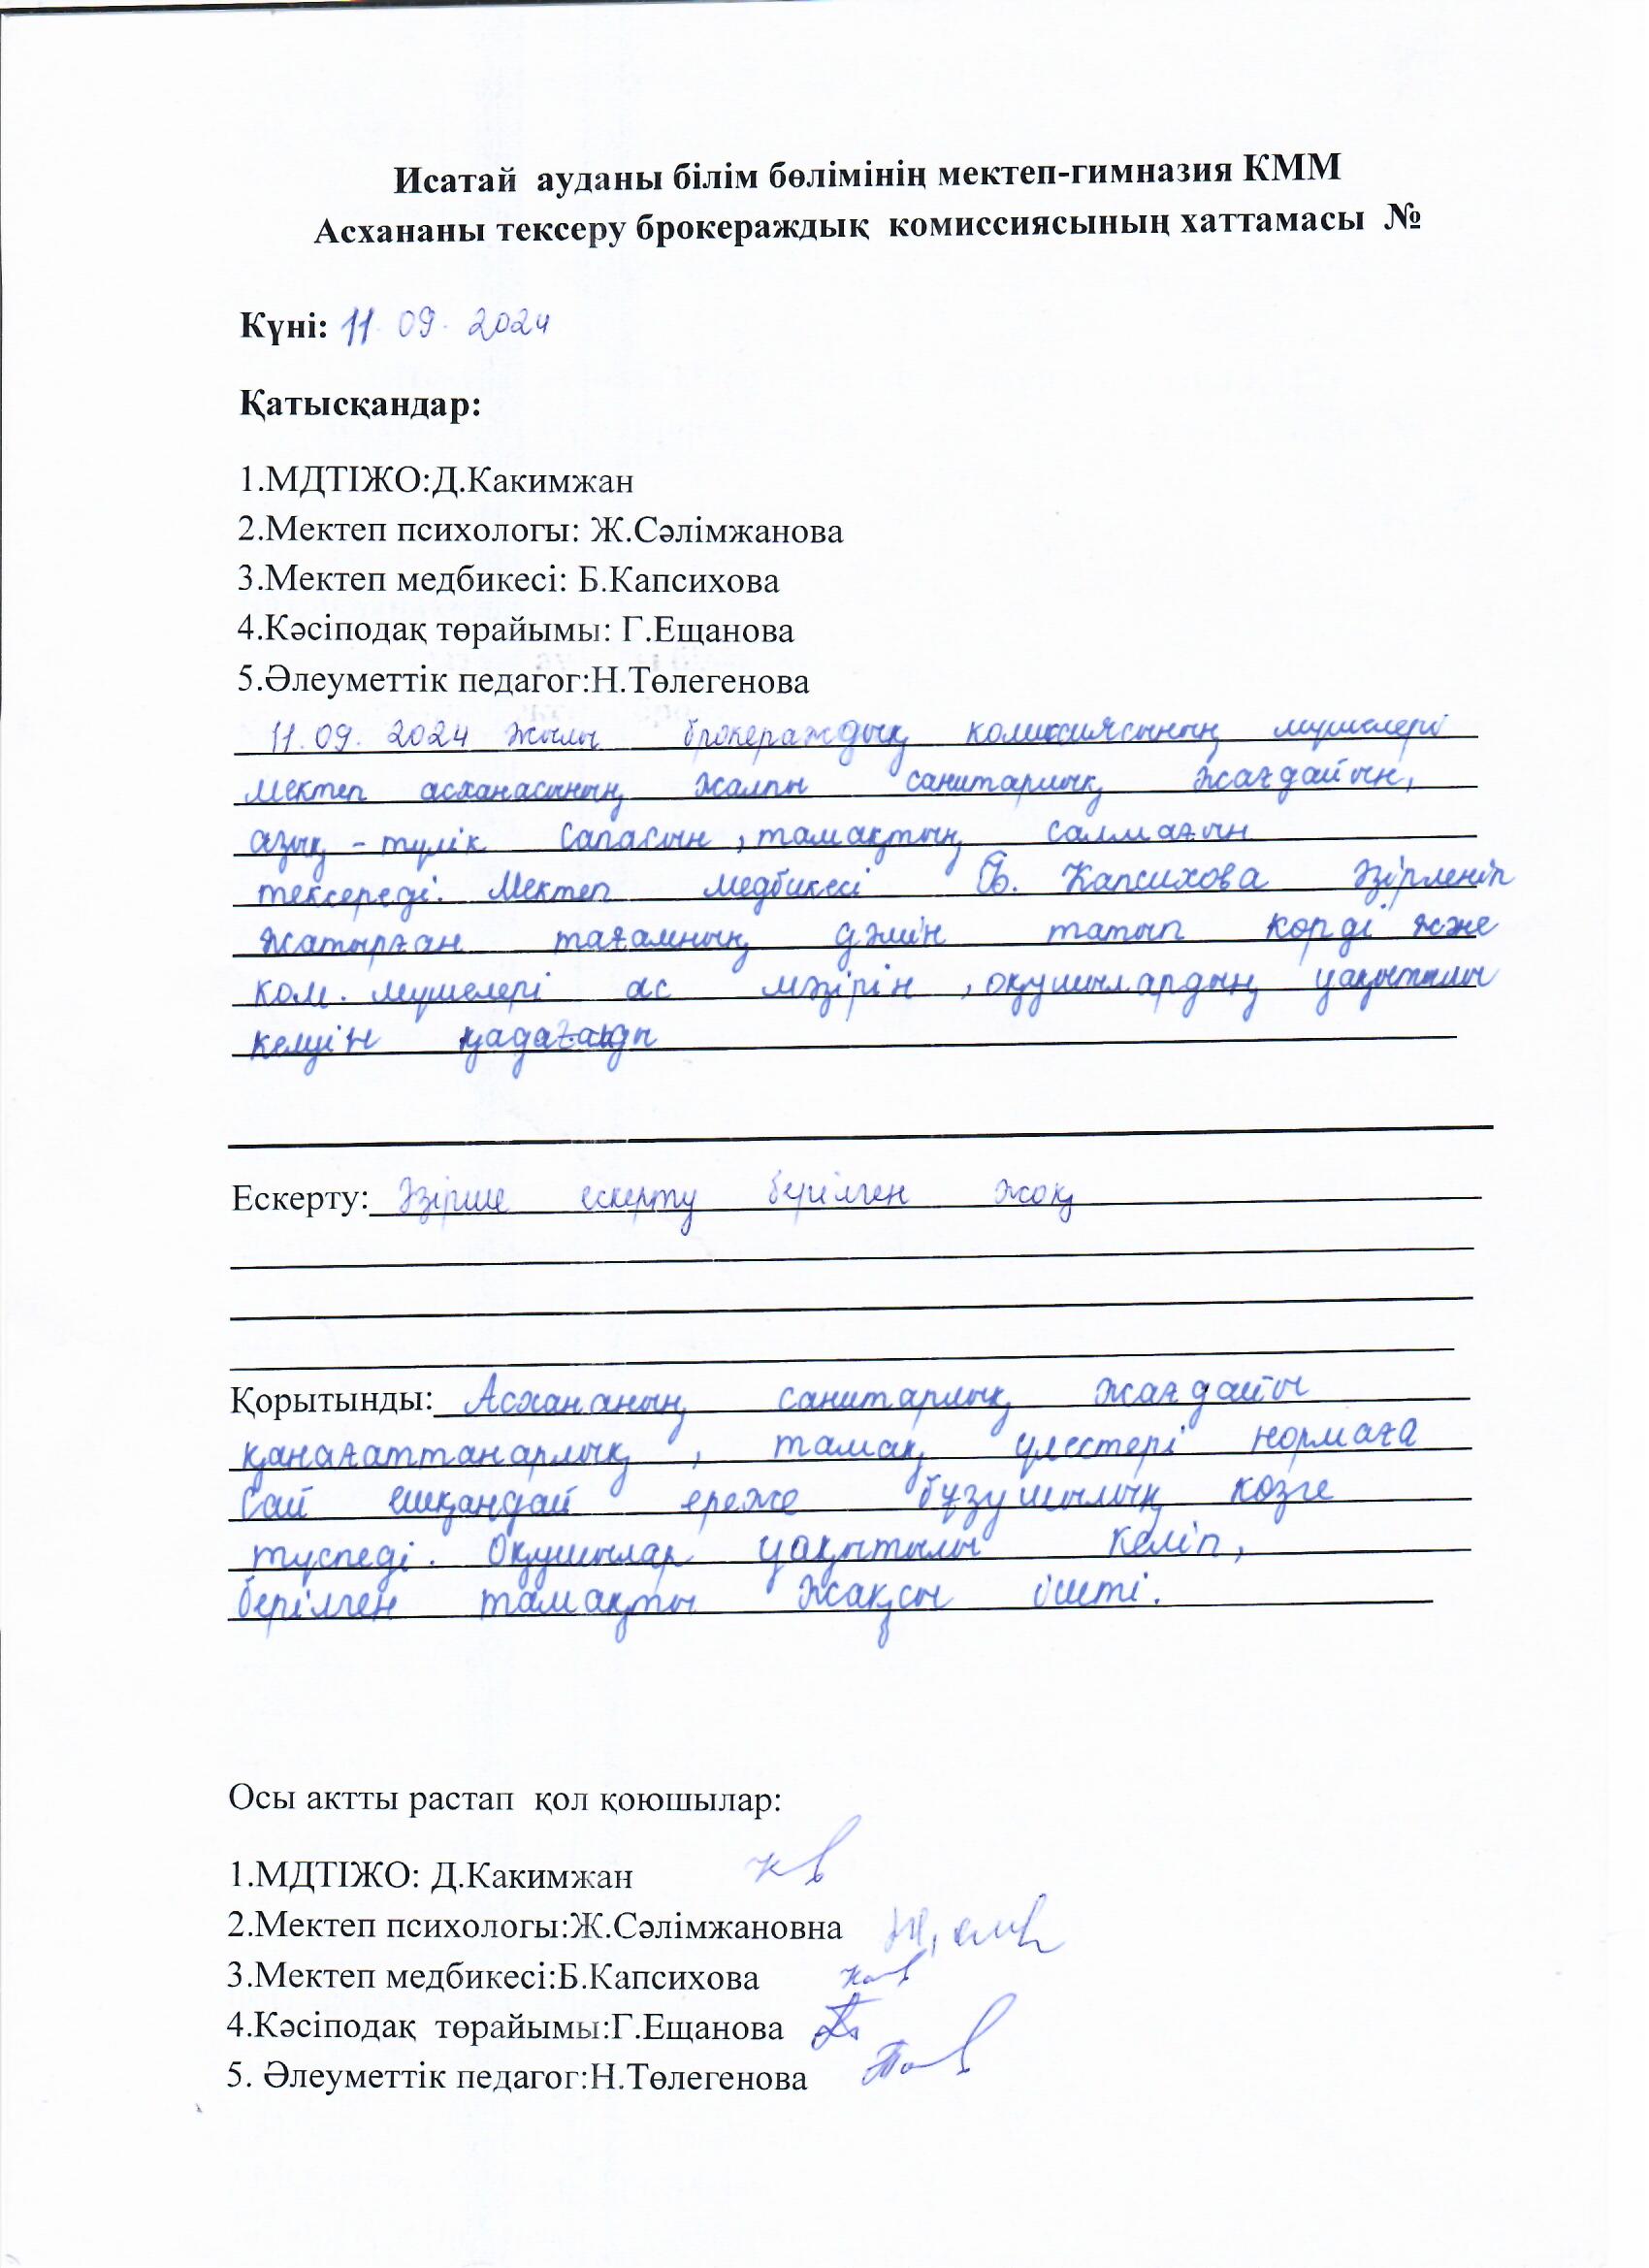 Исатай ауданы білім бөлімінің мектеп-гимназия КММ
Асхананы тексеру брокераждық комиссиясының хаттамасы №
Күні: 11. 09. 2024
Қатысқандар:
1.МДТІЖО:Д.Какимжан
2.Мектеп психологы: Ж.Сәлімжанова
3.Мектеп медбикесі: Б.Капсихова
4.Кәсіподақ төрайымы: Г.Ещанова
5.Әлеуметтік педагог:Н.Төлегенова
11.09. 2024 жылы брокераждық комиссиясының мүшелері
мектеп асханасының жалпы санитарлық жағдайын,
азық - түлік сапасын, тамақтың салмағын
тексереді. Мектеп медбикесі Б. Капсихова әзірленіп
жатырған тағамның дәмін татып көрді және
ком. мүшелері ас мәзірін, оқушылардың уақытылы
келуін
Ескерту: Әзірше ескерту берілген жоқ
Қорытынды: Асхананың санитарлық жағдайы
қанағаттанарлық, тамақ үлестері нормаға
сай ешқандай ереже бұзушылық көзге
түспеді. Оқушылар уақытылы келіп,
берілген тамақты жақсы ішті.
Осы актты растап қол қоюшылар:
1.МДТІЖО: Д.Какимжан
2.Мектеп психологы:Ж.Сәлімжановна
3.Мектеп медбикесі:Б.Капсихова
4.Кәсіподақ төрайымы:Г.Ещанова
5. Әлеуметтік педагог:Н.Төлегенова